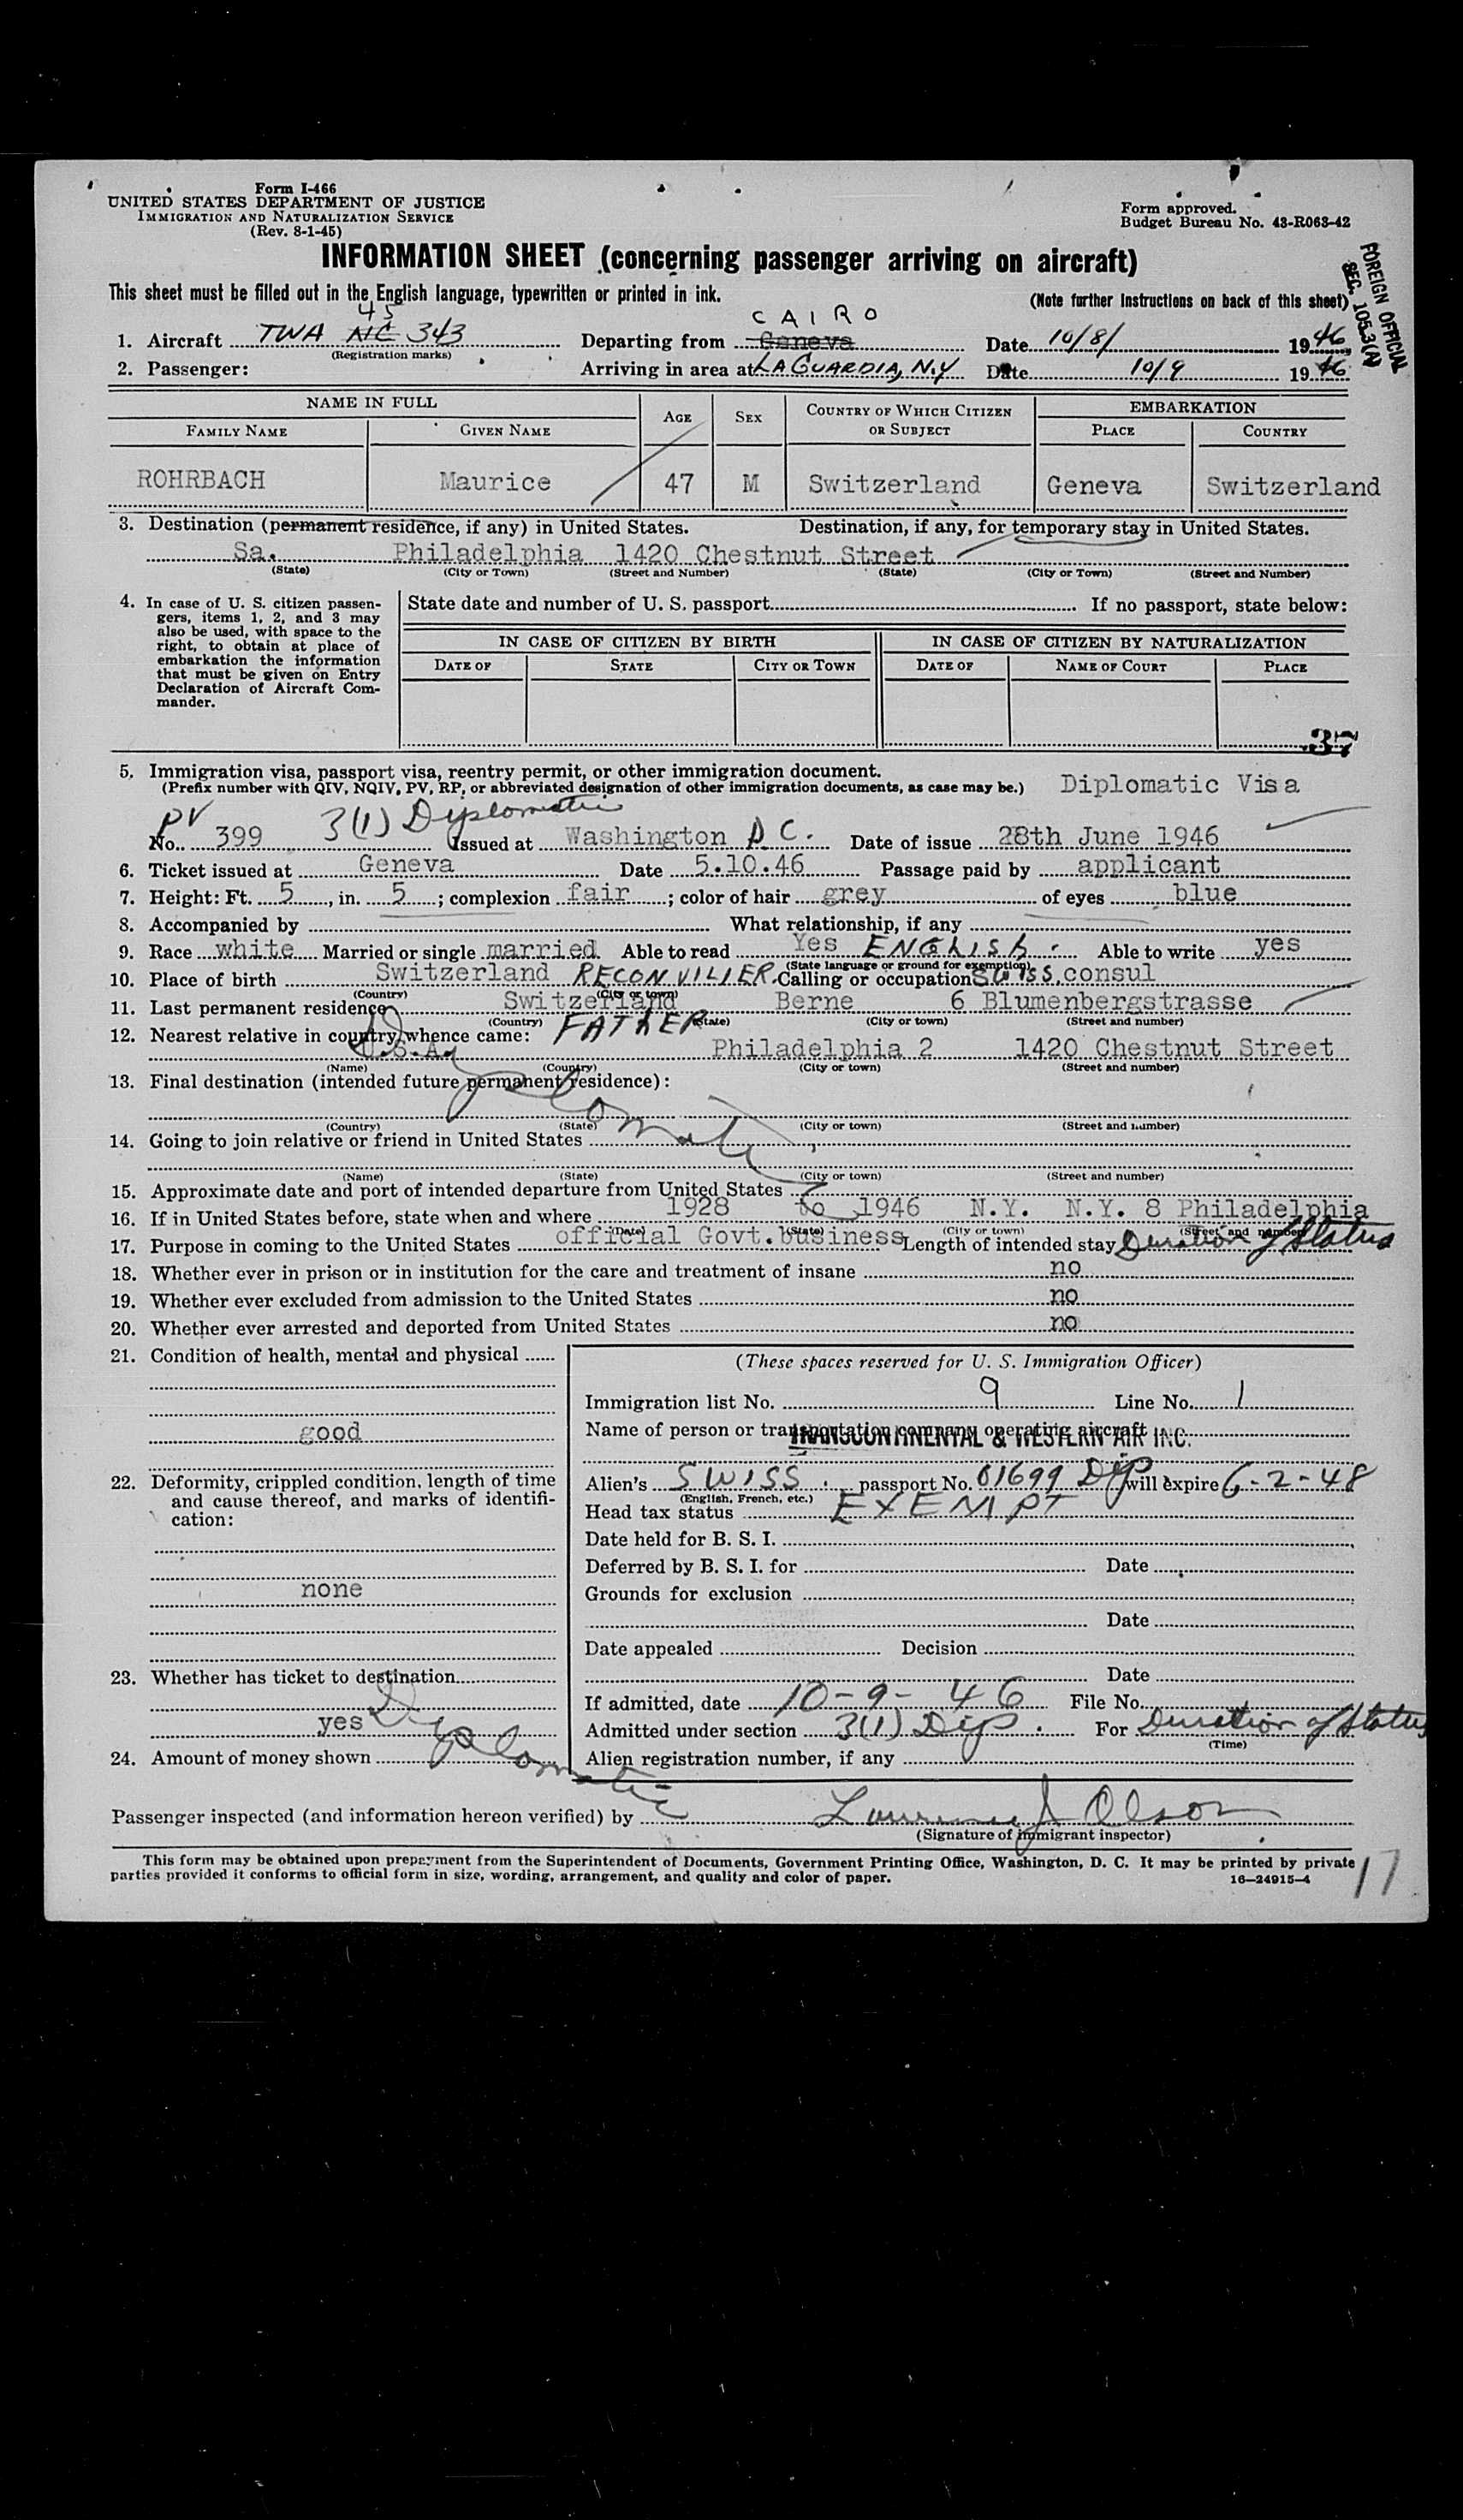 Form I-466
UNITED STATES DEPARTMENT OF JUSTICE
IMMIGRATION AND NATURALIZATION SERVICE
(Rev. 8-1-45)
Form approved.
Budget Bureau No. 43-R063-42
INFORMATION SHEET (concerning passenger arriving on aircraft)
FOREIGN OFFICIAL
SEC. 105.3(A)
This sheet must be filled out in the English language, typewritten or printed in ink.
(Note further instructions on back of this sheet)
45 CAIRO
1. Aircraft TWA NC 343 Departing from Geneva Date 10/8/ 1946
(Registration marks)
2. Passenger: Arriving in area at LA GUARDIA, N.Y Date 10/9 1946
NAME IN FULL AGE SEX COUNTRY OF WHICH CITIZEN OR SUBJECT EMBARKATION
FAMILY NAME GIVEN NAME PLACE COUNTRY
ROHRBACH Maurice 47 M Switzerland Geneva Switzerland
3. Destination (permanent residence, if any) in United States. Destination, if any, for temporary stay in United States.
Sa. Philadelphia 1420 Chestnut Street
(State) (City or Town) (Street and Number) (State) (City or Town) (Street and Number)
4. In case of U. S. citizen passengers, items 1, 2, and 3 may also be used, with space to the right, to obtain at place of embarkation the information that must be given on Entry Declaration of Aircraft Commander.
State date and number of U. S. passport If no passport, state below:
IN CASE OF CITIZEN BY BIRTH IN CASE OF CITIZEN BY NATURALIZATION
DATE OF STATE CITY OR TOWN DATE OF NAME OF COURT PLACE
37
5. Immigration visa, passport visa, reentry permit, or other immigration document.
(Prefix number with QIV, NQIV, PV, RP, or abbreviated designation of other immigration documents, as case may be.) Diplomatic Visa
PV 3(1) Diplomatic
No. 399 Issued at Washington D.C. Date of issue 28th June 1946
6. Ticket issued at Geneva Date 5.10.46 Passage paid by applicant
7. Height: Ft. 5, in. 5; complexion fair; color of hair grey of eyes blue
8. Accompanied by What relationship, if any
9. Race white Married or single married Able to read Yes ENGLISH. Able to write yes
(State language or ground for exemption)
10. Place of birth Switzerland RECONVILIER. Calling or occupation Swiss consul
(Country) (City or town)
11. Last permanent residence Switzerland Berne 6 Blumenbergstrasse
(Country) (State) (City or town) (Street and number)
12. Nearest relative in country whence came: FATHER
U.S.A. Philadelphia 2 1420 Chestnut Street
(Name) (Country) (City or town) (Street and number)
13. Final destination (intended future permanent residence):
Diplomatic
(Country) (State) (City or town) (Street and number)
14. Going to join relative or friend in United States
(Name) (State) (City or town) (Street and number)
15. Approximate date and port of intended departure from United States
16. If in United States before, state when and where 1928 to 1946 N.Y. N.Y. 8 Philadelphia
(Date) (State) (City or town) (Street and number)
17. Purpose in coming to the United States official Govt. business Length of intended stay Duration of Status
18. Whether ever in prison or in institution for the care and treatment of insane no
19. Whether ever excluded from admission to the United States no
20. Whether ever arrested and deported from United States no
21. Condition of health, mental and physical
good
22. Deformity, crippled condition, length of time and cause thereof, and marks of identification:
none
23. Whether has ticket to destination
yes
24. Amount of money shown Diplomatic
(These spaces reserved for U. S. Immigration Officer)
Immigration list No. 9 Line No. 1
Name of person or transportation company operating aircraft
TRANSCONTINENTAL & WESTERN AIR INC.
Alien's SWISS passport No. 01699 Dip will expire 6-2-48
(English, French, etc.)
Head tax status EXEMPT
Date held for B. S. I.
Deferred by B. S. I. for Date
Grounds for exclusion
Date
Date appealed Decision
Date
If admitted, date 10-9-46 File No.
Admitted under section 3(1) Dip. For Duration of Status
(Time)
Alien registration number, if any
Passenger inspected (and information hereon verified) by Lawrence J Olson
(Signature of immigrant inspector)
This form may be obtained upon prepayment from the Superintendent of Documents, Government Printing Office, Washington, D. C. It may be printed by private
parties provided it conforms to official form in size, wording, arrangement, and quality and color of paper. 16—24915-4
17